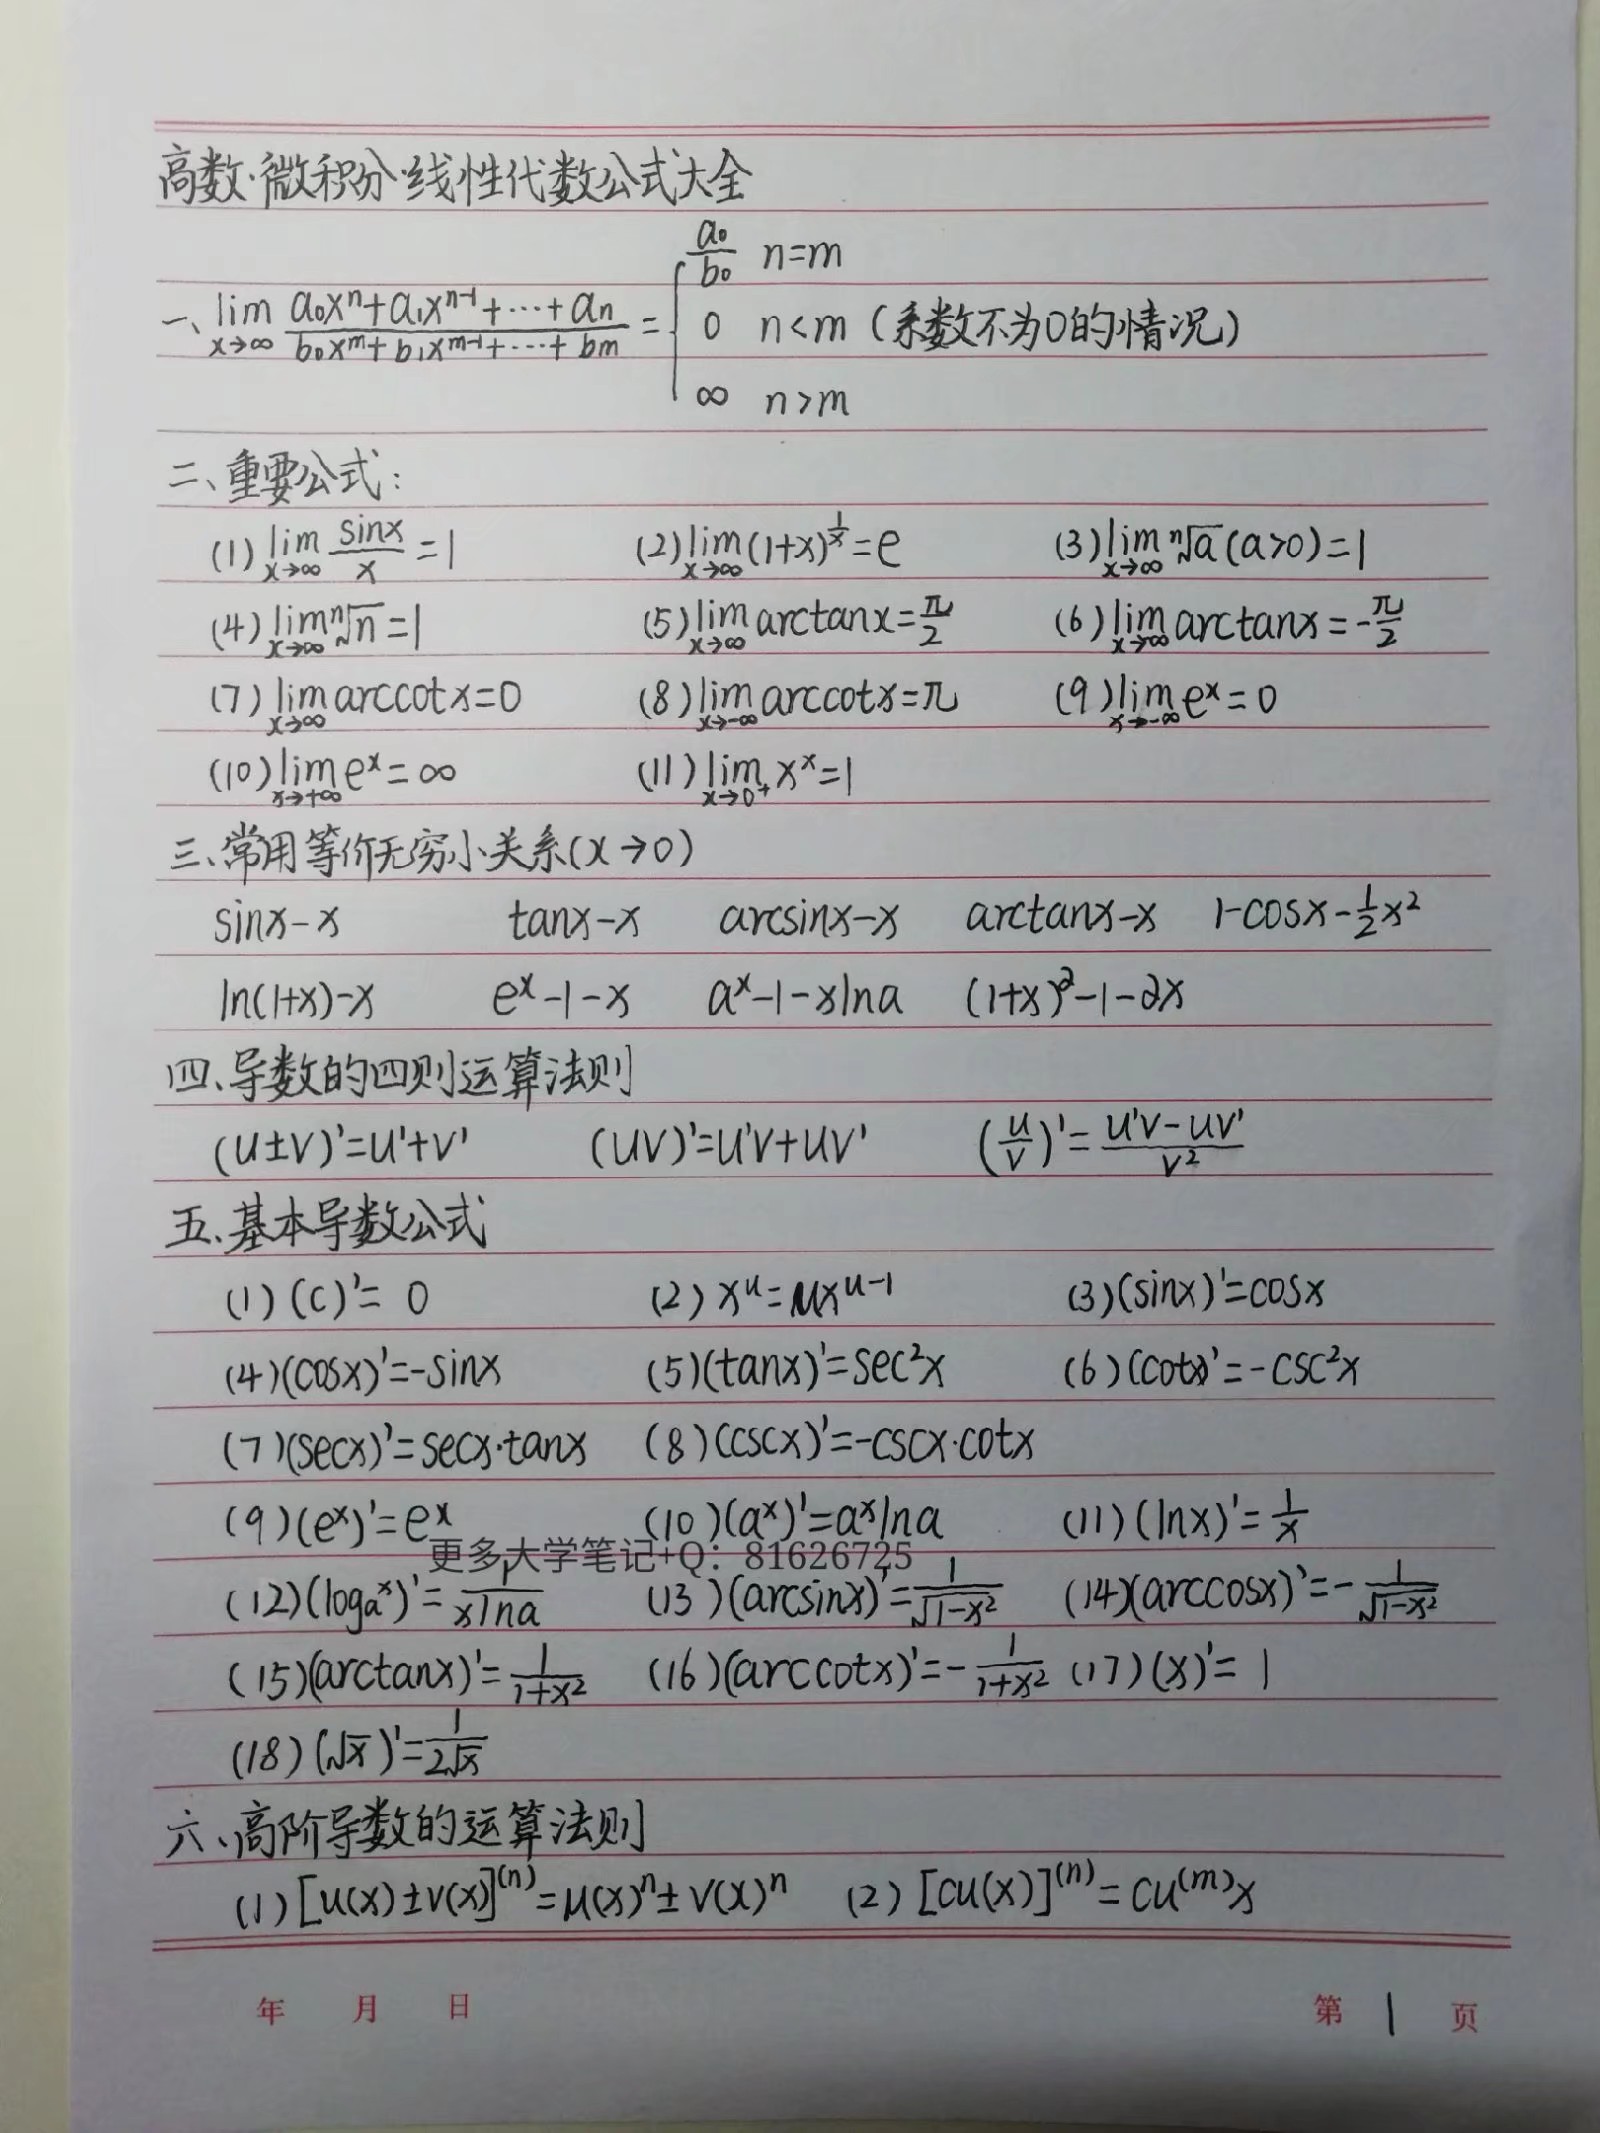 高数·微积分·线性代数公式大全
一、lim x→∞ (a₀xⁿ+a₁xⁿ⁻¹+⋯+aₙ)/(b₀xᵐ+b₁xᵐ⁻¹+⋯+bₘ) = { a₀/b₀ n=m
0 n<m (系数不为0的情况)
∞ n>m
二、重要公式:
(1) lim x→∞ sinx/x =1 (2) lim x→∞ (1+x)^(1/x)=e (3) lim x→∞ ⁿ√a (a>0)=1
(4) lim x→∞ ⁿ√n =1 (5) lim x→∞ arctanx=π/2 (6) lim x→∞ arctanx=-π/2
(7) lim x→∞ arccotx=0 (8) lim x→-∞ arccotx=π (9) lim x→-∞ eˣ=0
(10) lim x→+∞ eˣ=∞ (11) lim x→0⁺ xˣ=1
三、常用等价无穷小关系(x→0)
sinx-x tanx-x arcsinx-x arctanx-x 1-cosx-½x²
ln(1+x)-x eˣ-1-x aˣ-1-xlna (1+x)^∂-1-∂x
四、导数的四则运算法则
(u±v)'=u'+v' (uv)'=u'v+uv' (u/v)'=(u'v-uv')/v²
五、基本导数公式
(1) (c)'= 0 (2) xᵘ=uxᵘ⁻¹ (3)(sinx)'=cosx
(4)(cosx)'=-sinx (5)(tanx)'=sec²x (6)(cotx)'=-csc²x
(7)(secx)'=secx·tanx (8)(cscx)'=-cscx·cotx
(9)(eˣ)'=eˣ (10)(aˣ)'=aˣlna (11)(lnx)'=1/x
更多大学笔记+Q: 81626725
(12)(logₐˣ)'=1/(xlna) (13)(arcsinx)'=1/√(1-x²) (14)(arccosx)'=-1/√(1-x²)
(15)(arctanx)'=1/(1+x²) (16)(arccotx)'=-1/(1+x²) (17)(x)'=1
(18)(√x)'=1/(2√x)
六、高阶导数的运算法则
(1)[u(x)±v(x)]⁽ⁿ⁾=u(x)ⁿ±v(x)ⁿ (2)[cu(x)]⁽ⁿ⁾=cu⁽ᵐ⁾x
年 月 日 第 1 页